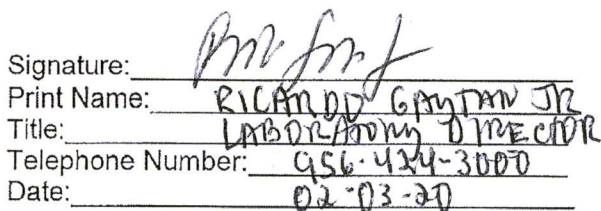 Signature:
Print Name: RICARDO GAYTAN JR
Title: LABORATORY DIRECTOR
Telephone Number: 956-424-3000
Date: 02-03-20